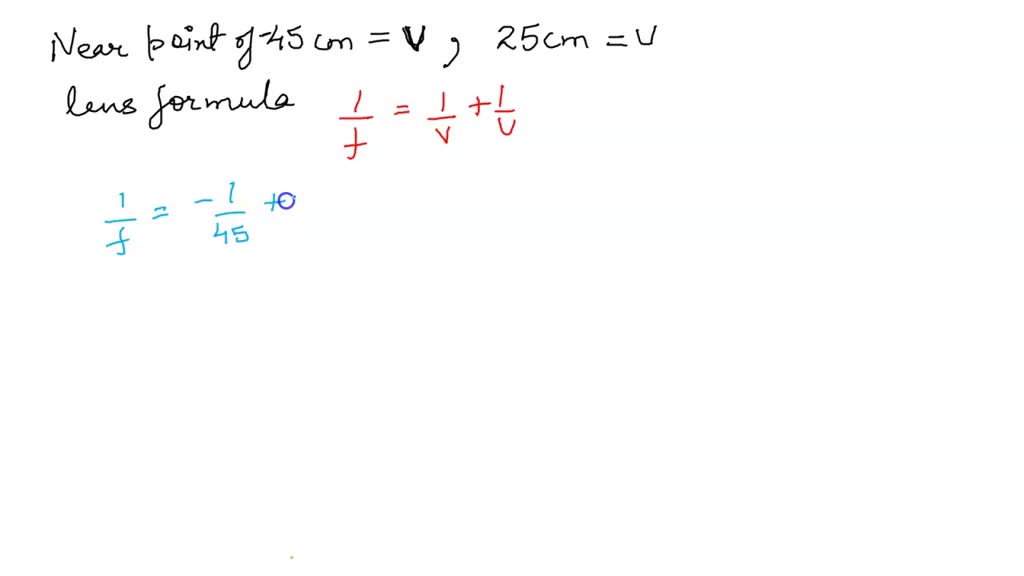 Near point of -45 cm = V , 25cm = U
lens formula 1/f = 1/v + 1/u
1/f = - 1/45 +